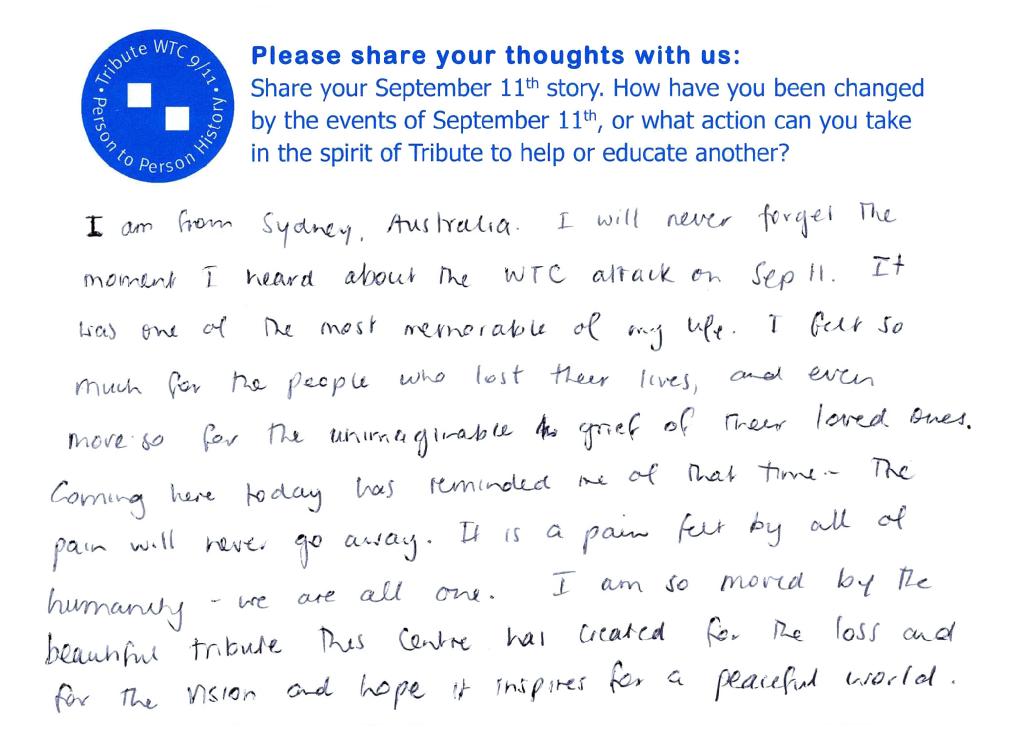 Tribute WTC 9/11
Person to Person History
Please share your thoughts with us:
Share your September 11th story. How have you been changed
by the events of September 11th, or what action can you take
in the spirit of Tribute to help or educate another?
I am from Sydney, Australia. I will never forget the
moment I heard about the WTC attack on Sep 11. It
was one of the most memorable of my life. I felt so
much for the people who lost their lives, and even
more so for the unimaginable grief of their loved ones.
Coming here today has reminded me of that time - The
pain will never go away. It is a pain felt by all of
humanity - we are all one. I am so moved by the
beautiful tribute this Centre has created for the loss and
for the vision and hope it inspires for a peaceful world.